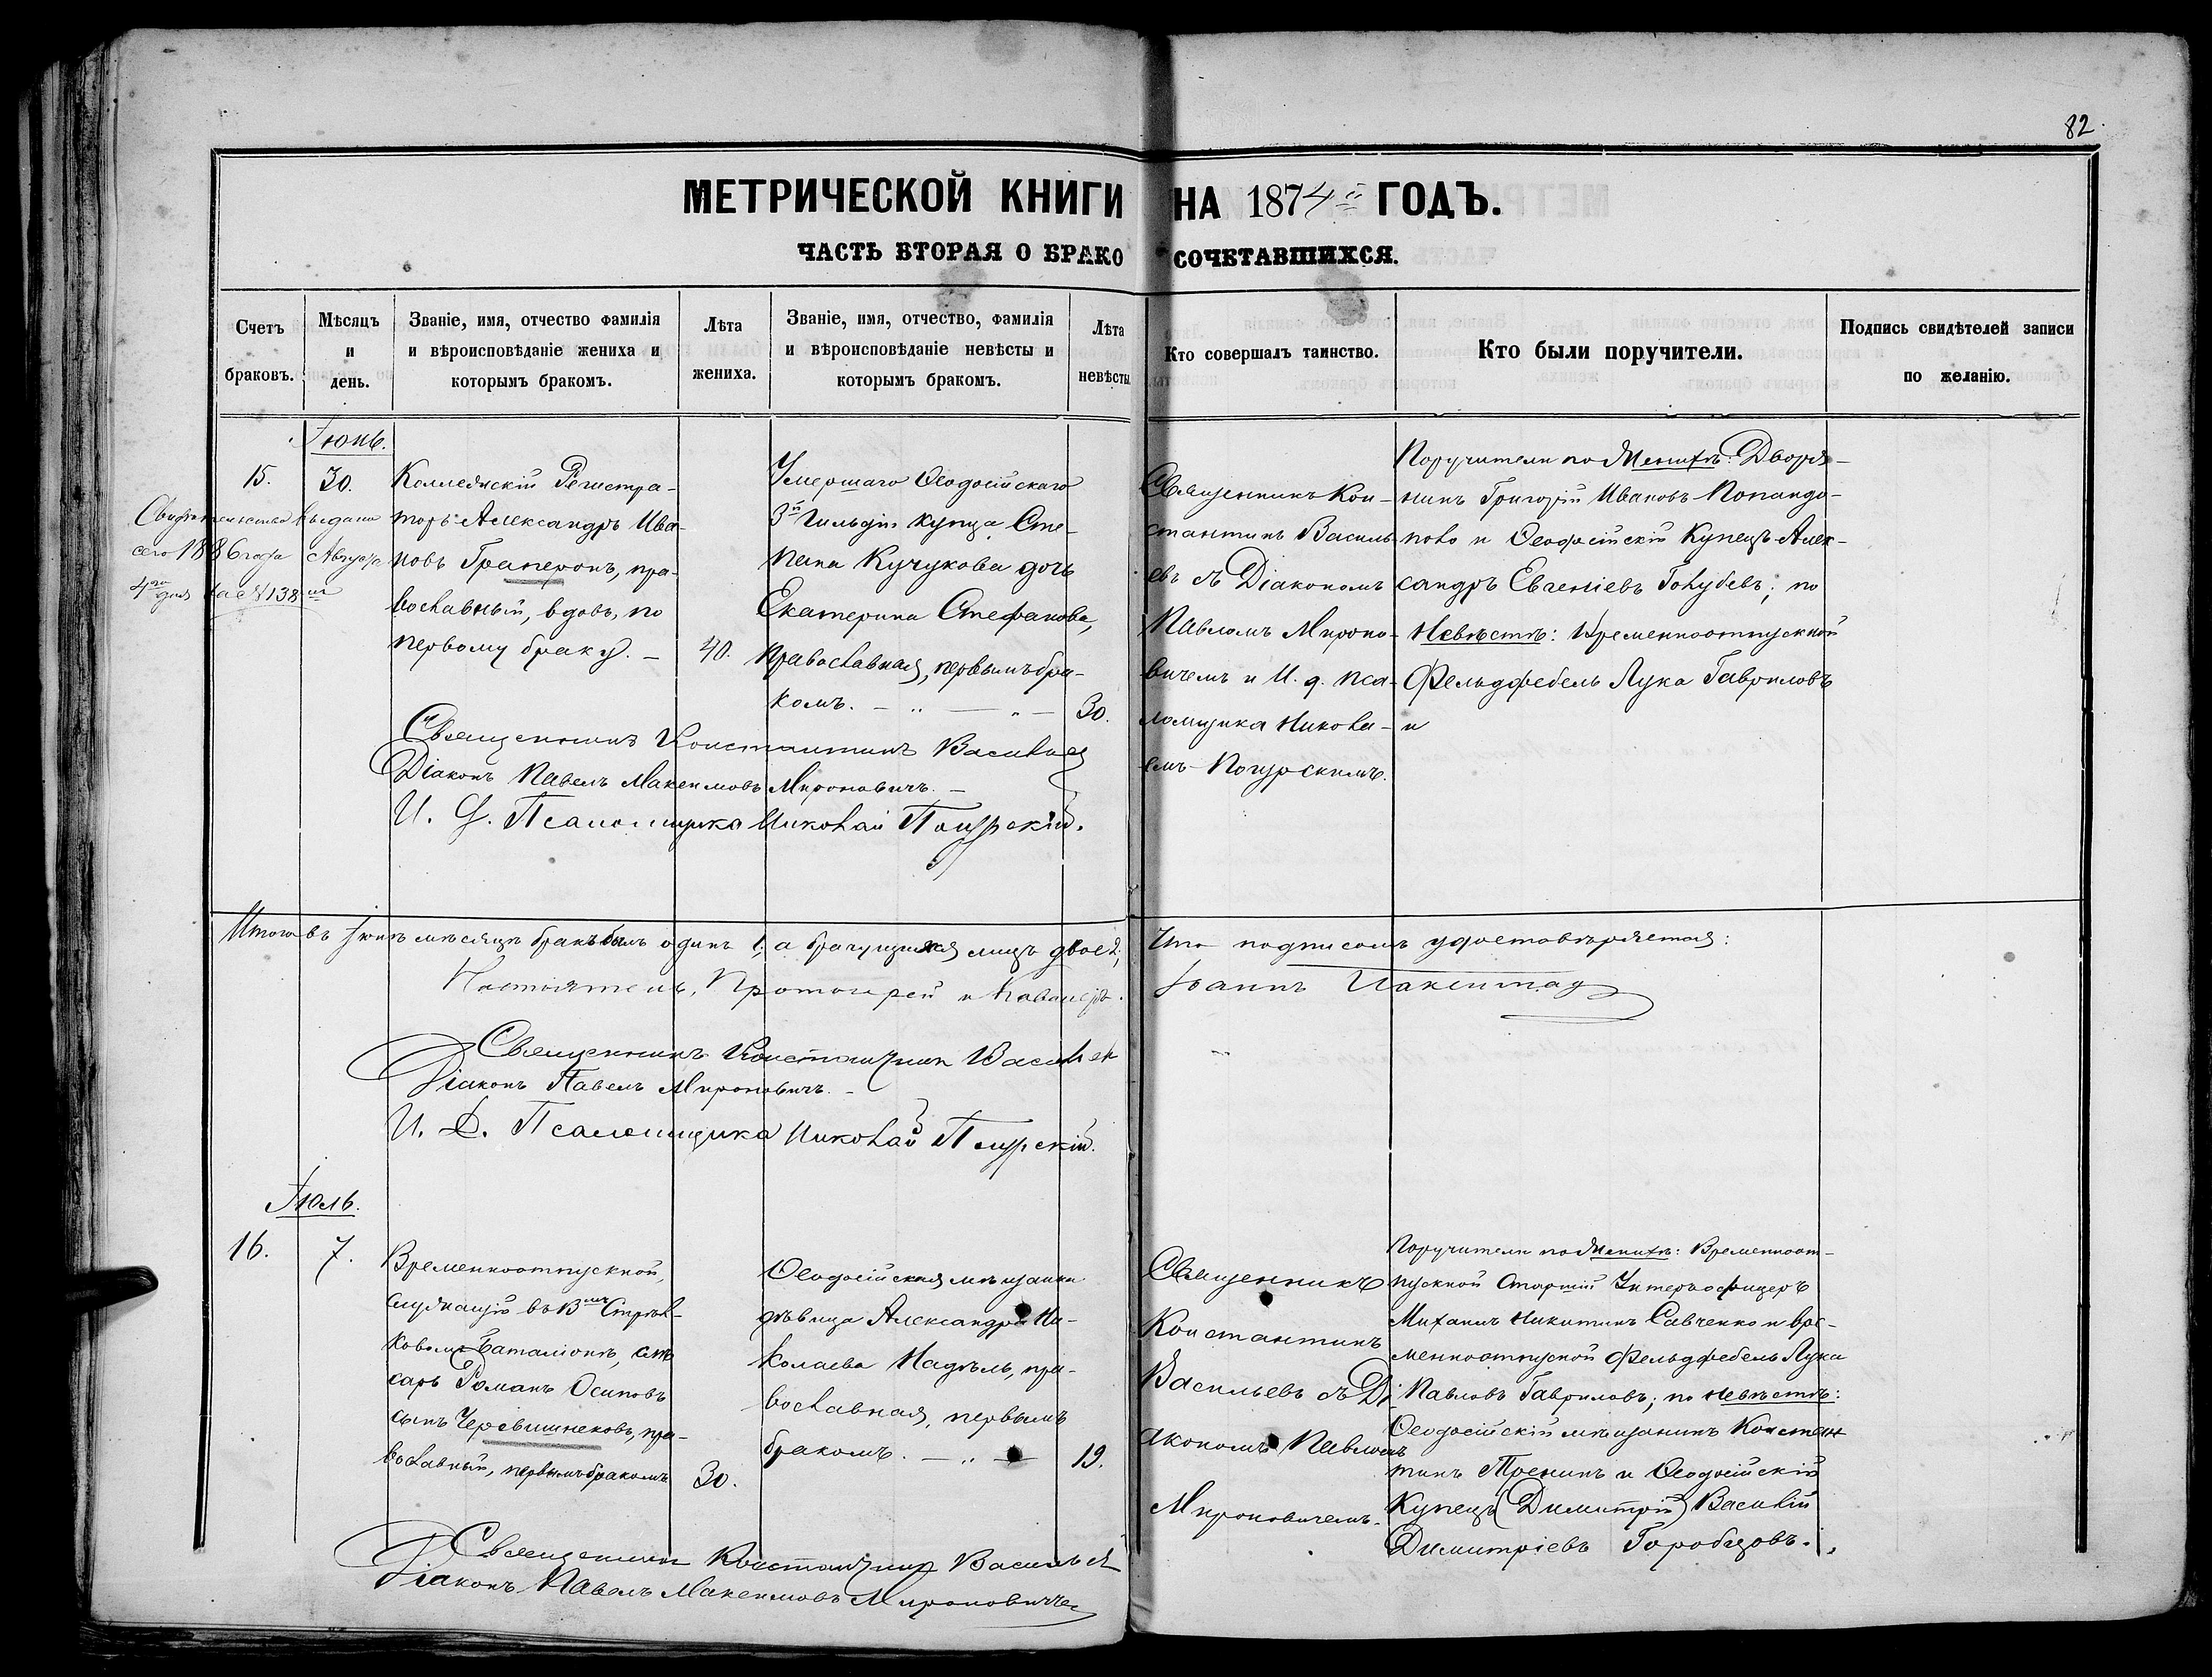 82
МЕТРИЧЕСКОЙ КНИГИ НА 1874й ГОДЪ.
ЧАСТЬ ВТОРАЯ О БРАКОСОЧЕТАВШИХСЯ.
Счетъ браковъ.
Мѣсяцъ и день.
Званіе, имя, отчество фамилія
и вѣроисповѣданіе жениха и
которымъ бракомъ.
Лѣта жениха.
Званіе, имя, отчество, фамилія
и вѣроисповѣданіе невѣсты и
которымъ бракомъ.
Лѣта невѣсты
Кто совершалъ таинство.
Кто были поручители.
Подпись свидѣтелей записи
по желанію.
Іюнь.
15.
30.
Свидѣтельство выдано
сего 1886 года Августа
4го дня за № 138м
Коллежскій Регистра-
торъ Александръ Ива-
новъ Граперонъ, пра-
вославный, вдовъ, по
первому браку. —
40.
Умершаго Ѳеодосійскаго
3й Гильдіи купца Сте-
пана Кучукова дочь
Екатерина Стефанова,
православная, первымъ бра-
комъ. — „ — „ —
30.
Священникъ Кон-
стантинъ Василь-
евъ съ Діакономъ
Павломъ Мироно-
вичемъ и И. д. пса-
ломщика Никола-
емъ
Поручители по Женихѣ: Дворя-
нинъ Григорій Ивановъ Попандо-
поло и Ѳеодосійскій Купецъ Алек-
сандръ Евгеніевъ Голубевъ; по
Невѣстѣ: Временноотпускной
Фельдфебель Лука Гавриловъ
и
Священникъ Константинъ Васильев
Діаконъ Павелъ Максимовъ Мироновичъ. —
И. Д. Псаломщика Николай
Итого въ Іюнѣ мѣсяцѣ бракъ былъ одинъ 1, а брачущихся лицъ двое 2,
Что подписомъ удостовѣряется:
Настоятель, Протоіерей и Кавалеръ
Іоаннъ
Священникъ Константинъ Васильев
Діаконъ Павелъ Мироновичъ. —
И. Д. Псаломщика Николай
Іюль.
16.
7.
Временноотпускной,
служащій въ Вмъ Стрѣл-
ковомъ Баталіонѣ, сле
сарь Романъ Осиповъ
сынъ Черевишнековъ, пра-
вославный, первымъ бракомъ
30.
Ѳеодосійская мѣщанка
дѣвица Александра Ни-
колаева Надѣль, пра-
вославная, первымъ
бракомъ. — „ —
19.
Священникъ
Константинъ
Васильевъ съ Ді
акономъ Павломъ
Мироновичемъ.
Поручители по Женихѣ: Временноот-
пускной Старшій Унтеръ офицеръ
Михаилъ Никитинъ Савченко и вре-
менноотпускной Фельдфебель Лука
Павловъ Гавриловъ; по Невѣстѣ:
Ѳеодосійскій мѣщанинъ Констан
тинъ Пренинъ и Ѳеодосійскій
Купецъ (Димитрій) Василій
Димитріевъ Горобцовъ.
Священникъ Константинъ Васильев
Діаконъ Павелъ Максимовъ Мироновичъ